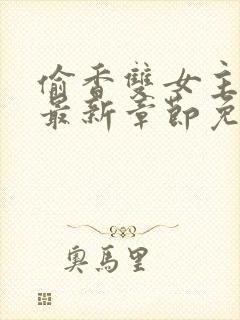 偷香雙女主
最新章節免
奧馬里